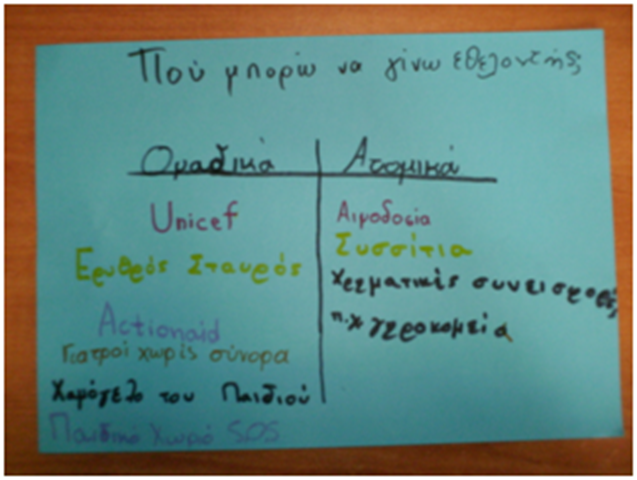 Πού μπορώ να γίνω εθελοντής;
Ομαδικά
Unicef
Ερυθρός Σταυρός
Actionaid
Γιατροί χωρίς σύνορα
Χαμόγελο του Παιδιού
Παιδικό Χωριό SOS
Ατομικά
Αιμοδοσία
Συσσίτια
Χρηματικές συνεισφορές
π.χ γηροκομεία